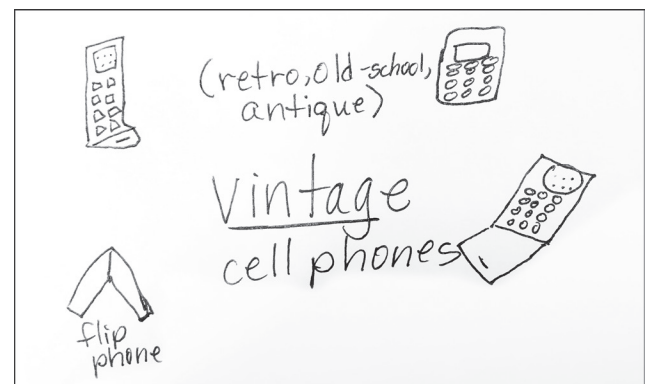 (retro, old-school,
antique)
vintage
cell phones
flip
phone